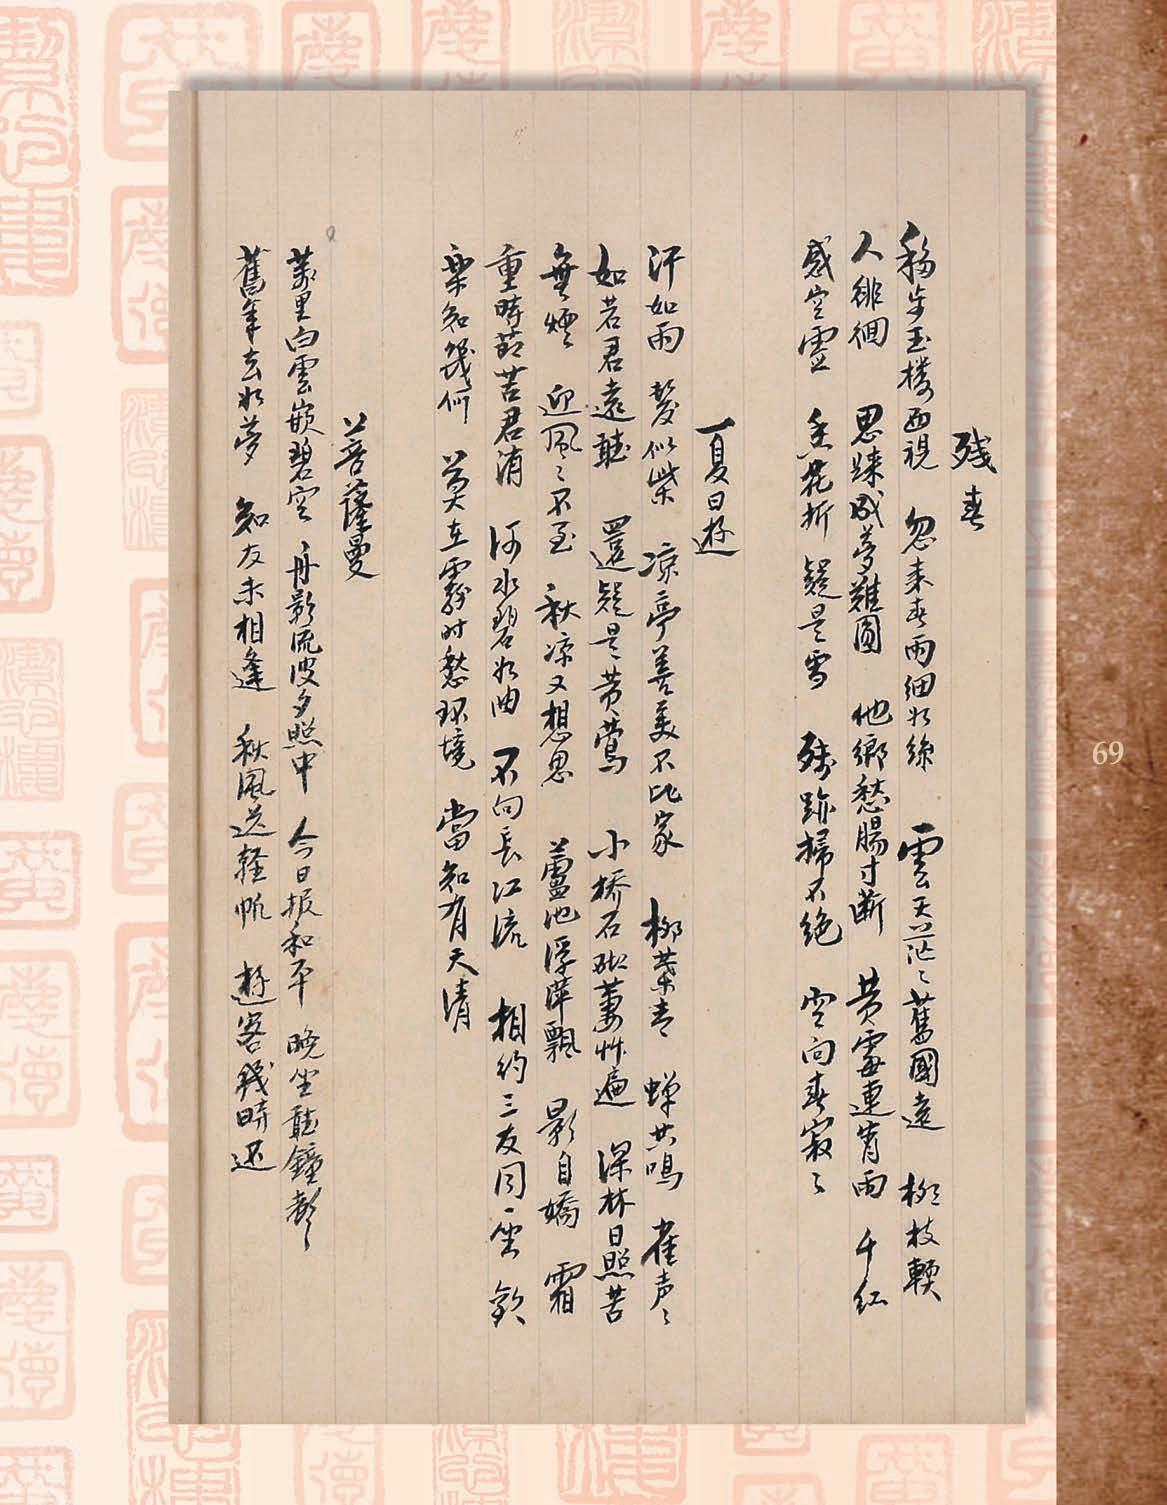 殘春
移步玉楼西視 忽来春雨細如絲 雲天茫〻舊國遠 柳枝輭
人徘徊 思踈成夢難圓 他鄉愁腸寸断 黄霉連宵雨 千红
感空虛 香花折 疑是雪 殘跡掃不绝 空向春寂〻
夏日遊
汗如雨 髮似柴 凉亭善美不比家 柳葉青 蝉共鳴 雀声〻
如若君遠聽 還疑是黄莺 小橋石砌萋艸遍 深林日照苦
無煙 迎風〻不至 秋凉又想思 蘆池浮萍飄 影自嬌 霜
重時節苦君消 河水碧如曲 不向長江流 相約三友同一坐 飲
樂知幾何 莫在霧时愁环境 當知有天清
菩薩曼
萬里白雲嵌碧空 舟影流波夕照中 今日报和平 晚坐聽鐘声
舊年去如夢 知友未相逢 秋風送轻帆 遊客幾時还
69